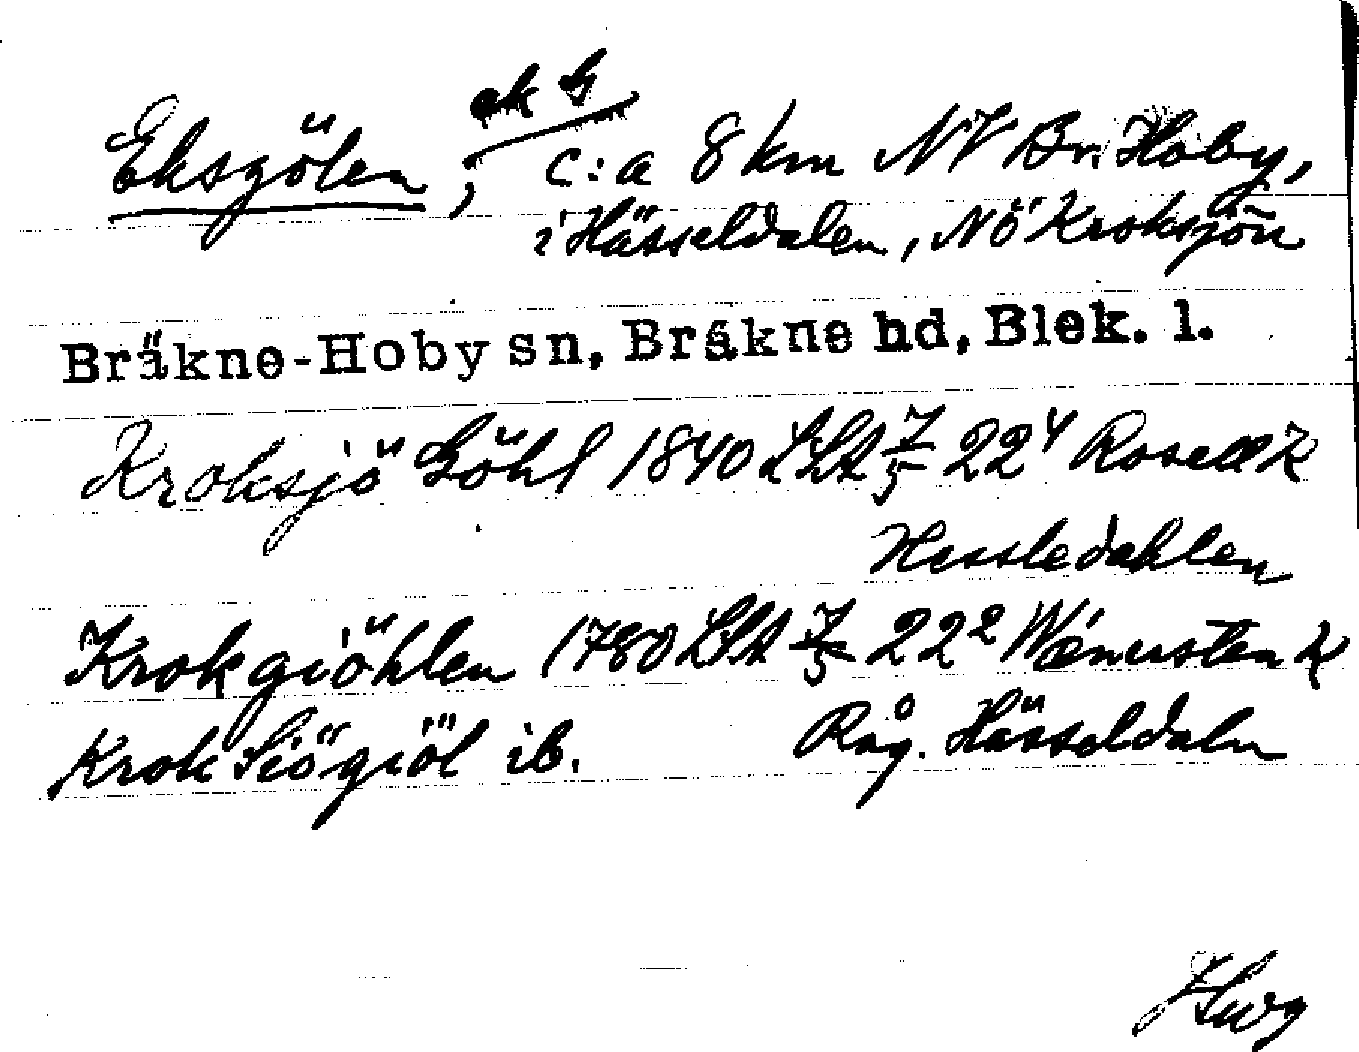 Eksgölen, ek G c:a 8 km NV Br. Hoby,
i Hässeldalen, NÖ Kroksjön
Bräkne-Hoby sn, Bräkne hd, Blek. l.
Kroksjö Göhl 1840 LSA 7/5 22⁴ Rosell K
Hessledahlen
Krokgiöhlen 1780 LSA 7/5 22² Wænersten K
Krok Siögiöl ib. Råg. Hässeldalen